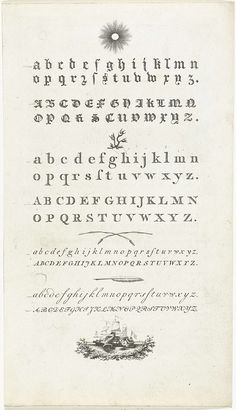 abcdefghijklmn
opqrzſstuvwxyz.
ABCDEFGHIJKLMN
OPQRSTUVWXYZ.
abcdefghijklmn
opqrsſtuvwxyz.
ABCDEFGHIJKLMN
OPQRSTUVWXYZ.
abcdefghijklmnopqrsſtuvwxyz.
ABCDEFGHIJKLMNOPQRSTUVWXYZ.
abcdefghijklmnopqrsſtuvwxyz.
ABCDEFGHIJKLMNOPQRSTUVWXYZ.